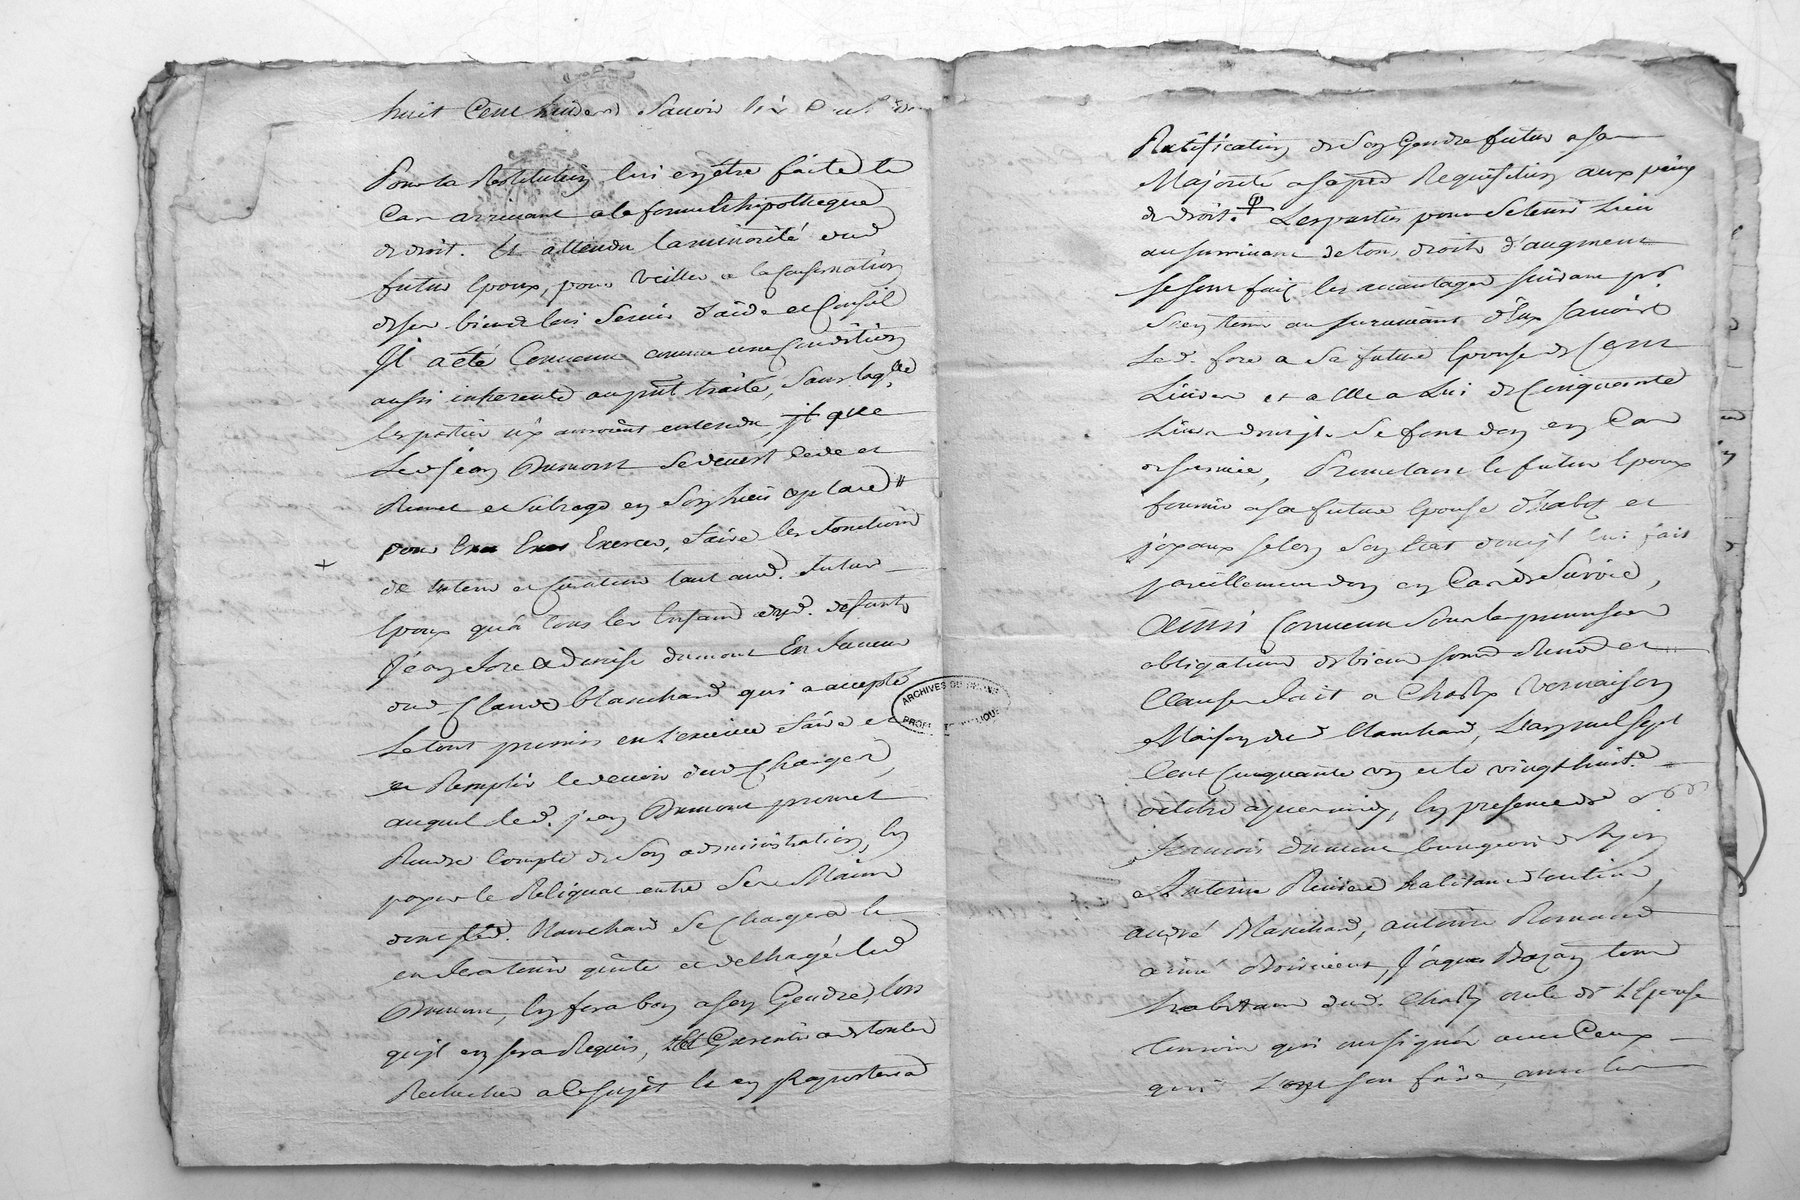 huit Cent
Pour la Restitution lui en être faite le
Cas arrivant a la forme & hipotheque
de droit. Et attendu la minorité dud
futur Epoux, pour veiller a la Conservation
de ses biens & lui Servir d'aide et Conseil
Il a été Convenu comme une Condition
aussi inherente au pnt traité, Sans laqlle
les parties n'x auroient entendu, que
Led Jean Dumont Se demet Cede et
Remet et Subroge en Son lieu et place
pour Exercer, faire les fonctions
de tuteur et Curateur tant aud. futur
Epoux qu'a tous les Enfans dud. defunt
Jean fore & denise dumont En faveur
dud Claude Blanchard qui a accepté
Le tout promis en L'exercice faire et
et Remplir le devoir dud Charges,
auquel led. jean Dumont promet
Rendre Compte de Son administration, En
payer le Reliquat entre Ses Mains
dont led. Blanchard Se Chargera le
en tenir quitte et decharge led
Dumont, En fera bon a Son Gendre, lors
qu'jl en Sera Requis, Et Garentira de toutes
Recherches a Ce Sujet Et en Raportera
Ratification de Son Gendre futur a Sa
Majorité a Sa pre Requisition aux peines
de droit. Les parties pour Se tenir Lieu
au Survivant de tous droits d'augment
Se Sont fait les avantages Suivant pr.
S'en tenir au Survivant d'Eux Sauoir
Led. fore a Sa future Epouse de Cent
Livres et a Elle a Lui de Cinquante
Livres dont jl. Se font don en Cas
de Survie, Promettant le futur Epoux
fournir a Sa future Epouse d'habits et
joyaux Selon Son Etat dont jl Lui fait
pareillement don en Cas de Survie,
Ainsi Convenu Sous les promesses
obligations de biens Soumis Renon et
Clauses fait a Charly Vernaison
Maison dud Blanchard, L'an mil Sept
Cent Cinquante un et le vingt huite
octobre apres midy, En presence de
francois dumont bourgeois de Lyon
Antoine Riviere habitant
andré Blanchard, antoine Romand
aimé, Jâques Bazan tous
habitans dud. Charly oncle de L'Epouse
temoins qui ont signés avec Ceux
qui L'ont Seu faire, avec les
ARCHIVES DU RHÔNE